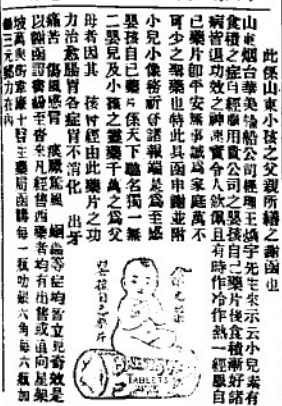 此係山東小孩之父親所繕之謝函也
山東烟台華美輪船公司經理王煥宇先生來示云小兒素有
食積之症自經服用貴公司之嬰孩自己藥片後食積漸好諸
病皆退功效之神速實令人欽佩且有時作冷作熱一經服自
已藥片卽平安無事誠為家庭萬不
可少之靈藥也特此具函申謝並附
小兒小像務祈登諸報端是為至感
嬰孩自己藥片係天下馳名獨一無
二嬰兒及小孩之靈藥千萬之為父
母者因其 孩曾經由此藥片之功
力治愈腸胃各症胃不消化 出牙
痛苦 傷風感冒 痰厥驚風 蛔蟲等症均皆立見奇效是
以踵函謝書紛至沓來凡經售西藥者均有出售或直向星架
坡萬 街韋廉士醫生藥局函購每一瓶叻銀六角每六瓶加
銀三元郵力在內
嬰孩自己藥片
TABLETS